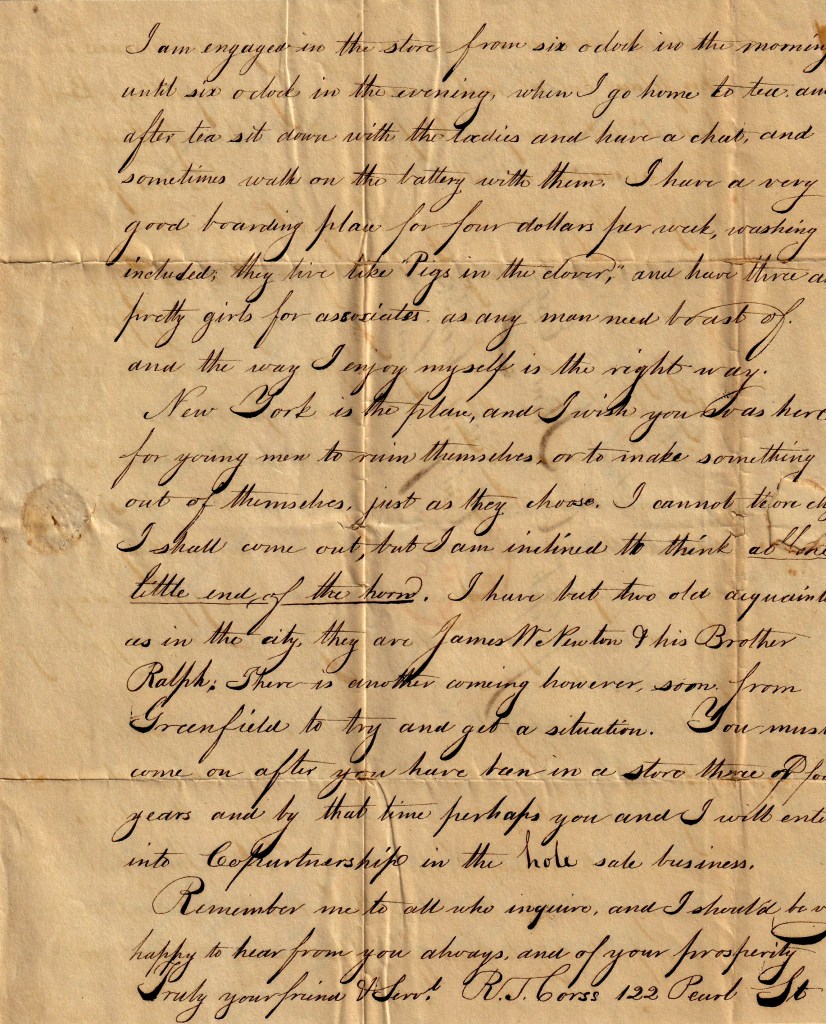 I am engaged in the store from six oclock in the morning
until six oclock in the evening, when I go home to tea. and
after tea sit down with the ladies and have a chat, and
sometimes walk on the battery with them. I have a very
good boarding place for four dollars per week, washing
included; they live like "Pigs in the clover," and have three as
pretty girls for associates. as any man need boast of.
and the way I enjoy myself is the right way.
New York is the place, and I wish you was here,
for young men to ruin themselves, or to make something
out of themselves, just as they choose. I cannot
I shall come out, but I am inclined to think at
little end of the horn. I have but two old acquaint
es in the city, they are James W. Newton & his Brother
Ralph; There is another comeing however, soon. from
Greenfield to try and get a situation. You must
come on after you have ban in a store three or fou
years and by that time perhaps you and I will ente
into Copartnership in the hole sale business.
Remember me to all who inquire, and I should'd be v
happy to hear from you always, and of your prosperity
Truly your friend & Servt. R. T. Corss 122 Pearl St